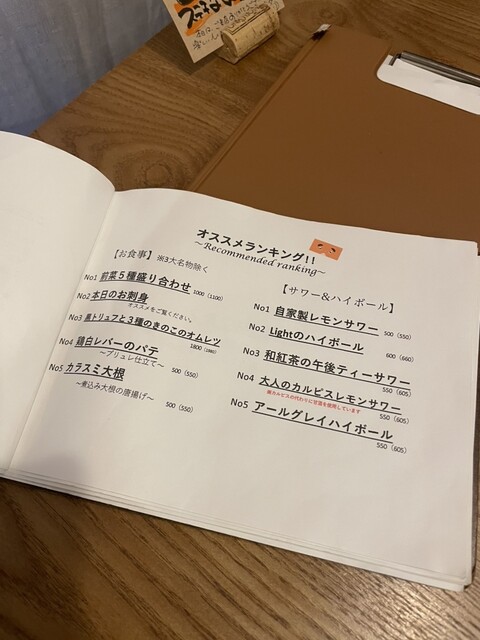 オススメランキング!!
~Recommended ranking~
【お食事】 ※3大名物除く
No1 前菜５種盛り合わせ
1000(1100)
No2 本日のお刺身
オススメをご覧ください。
No3 黒トリュフと３種のきのこのオムレツ
1800(1980)
No4 鶏白レバーのパテ
~ブリュレ仕立て~ 500(550)
No5 カラスミ大根 500(550)
~煮込み大根の唐揚げ~
500(550)
【サワー&ハイボール】
No1 自家製レモンサワー 500(550)
No2 Lightのハイボール 600(660)
No3 和紅茶の午後ティーサワー
550(605)
No4 大人のカルピスレモンサワー
※カルピスの代わりに甘酒を使用しています 550(605)
No5 アールグレイハイボール
550(605)